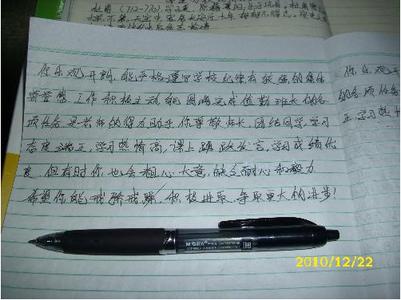 杜甫(712-770)
你乐观开朗,能严格遵守学校纪律有较强的集体
荣誉感,工作积极主动能圆满完成值勤班长的各
项任务是老师的得力助手你尊敬师长,团结同学,学习
态度端正,学习热情高,课上踊跃发言,学习成绩优
良,但有时你也会粗心大意,缺乏耐心和毅力
希望你能戒骄戒躁,积极进取,争取更大的进步!
你乐观开
的各项任务
正,学习热情
2010/12/22